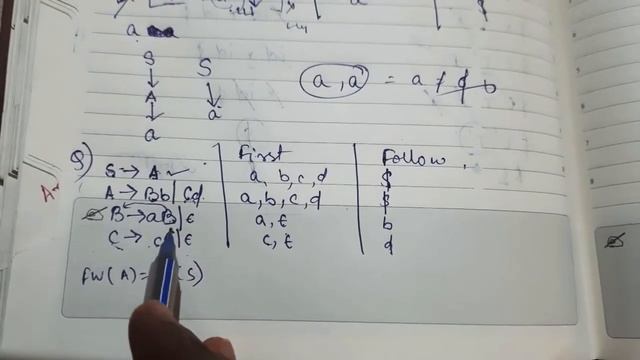 a
S S
A a
a
(a, a) = a
Q) First Follow
S → A ✓ a, b, c, d $
A → Bb | Cd a, b, c, d $
B → aB | ε a, ε b
C → c | ε c, ε d
FW(A) = (S)